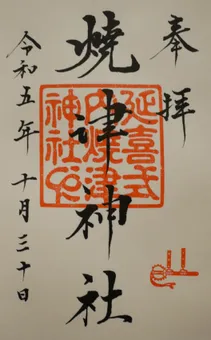 奉拝
焼津神社
延喜式
内焼津
神社印
令和五年 十月三十日